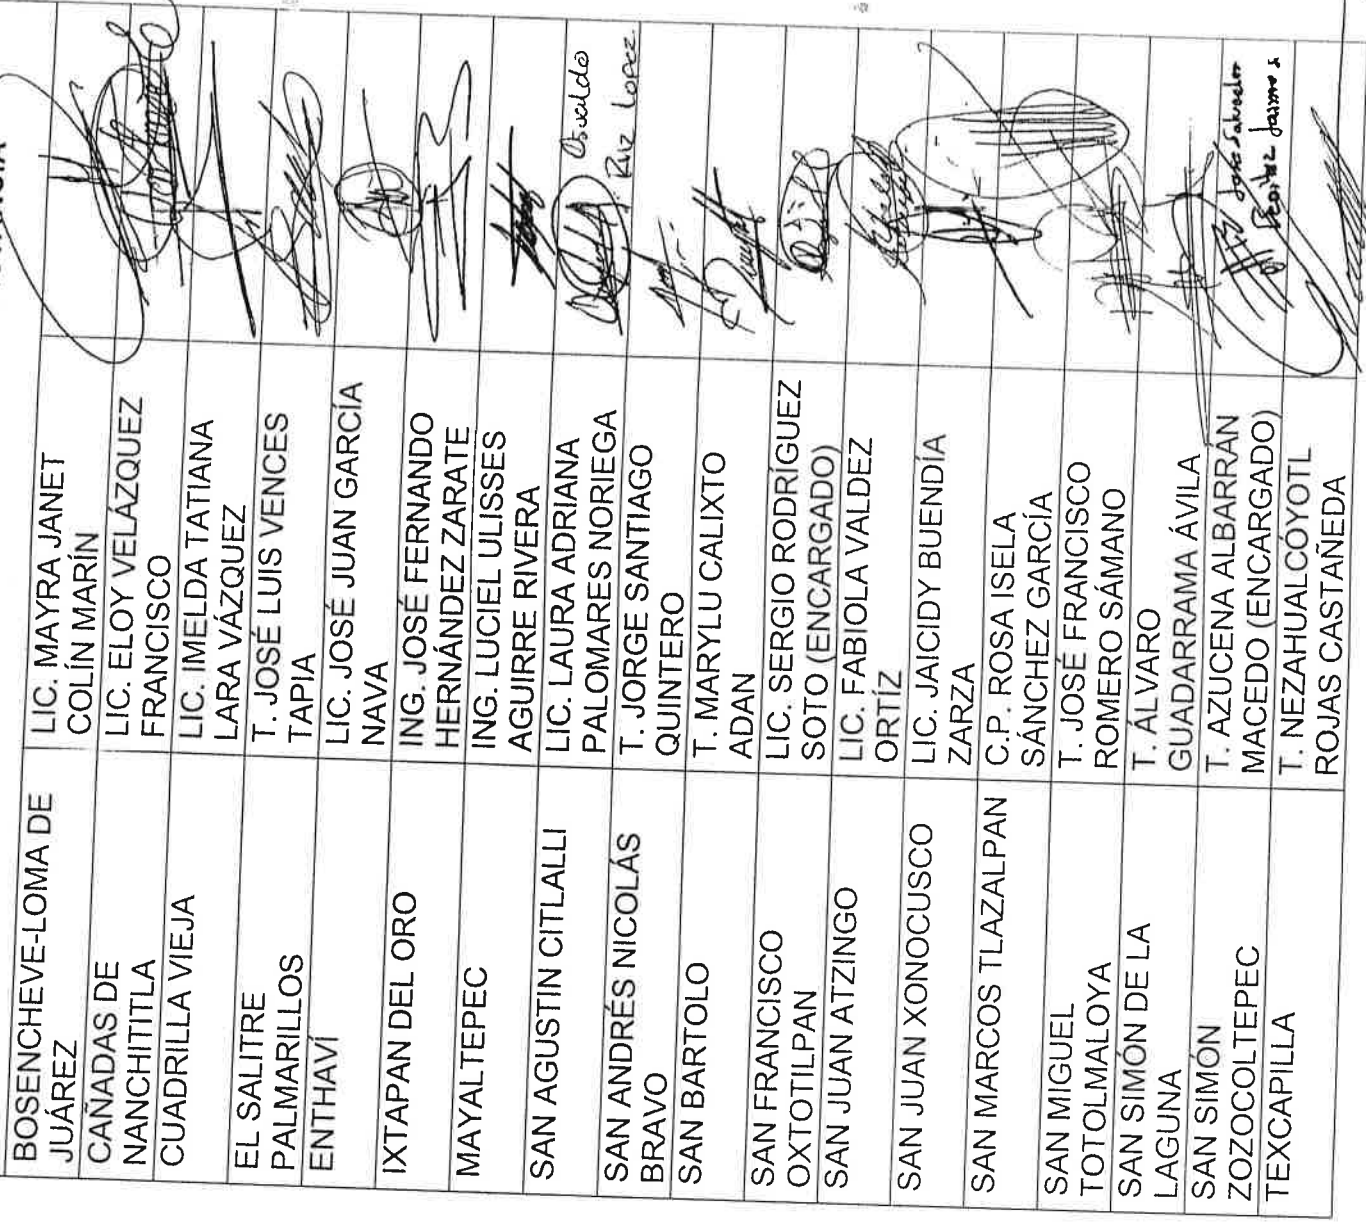 BOSENCHEVE-LOMA DE
JUÁREZ
LIC. MAYRA JANET
COLÍN MARÍN
CAÑADAS DE
NANCHITITLA
LIC. ELOY VELÁZQUEZ
FRANCISCO
CUADRILLA VIEJA
LIC. IMELDA TATIANA
LARA VÁZQUEZ
EL SALITRE
PALMARILLOS
T. JOSÉ LUIS VENCES
TAPIA
ENTHAVÍ
LIC. JOSÉ JUAN GARCÍA
NAVA
IXTAPAN DEL ORO
ING. JOSÉ FERNANDO
HERNÁNDEZ ZARATE
MAYALTEPEC
ING. LUCIEL ULISSES
AGUIRRE RIVERA
SAN AGUSTIN CITLALLI
LIC. LAURA ADRIANA
PALOMARES NORIEGA
Osvaldo
Ruiz Lopez
SAN ANDRÉS NICOLÁS
BRAVO
T. JORGE SANTIAGO
QUINTERO
SAN BARTOLO
T. MARYLU CALIXTO
ADAN
SAN FRANCISCO
OXTOTILPAN
LIC. SERGIO RODRÍGUEZ
SOTO (ENCARGADO)
SAN JUAN ATZINGO
LIC. FABIOLA VALDEZ
ORTÍZ
SAN JUAN XONOCUSCO
LIC. JAICIDY BUENDÍA
ZARZA
SAN MARCOS TLAZALPAN
C.P. ROSA ISELA
SÁNCHEZ GARCÍA
SAN MIGUEL
TOTOLMALOYA
T. JOSÉ FRANCISCO
ROMERO SÁMANO
SAN SIMÓN DE LA
LAGUNA
T. ÁLVARO
GUADARRAMA ÁVILA
SAN SIMÓN
ZOZOCOLTEPEC
T. AZUCENA ALBARRÁN
MACEDO (ENCARGADO)
Jose Salvador
Benitez Jaimes
TEXCAPILLA
T. NEZAHUALCÓYOTL
ROJAS CASTAÑEDA